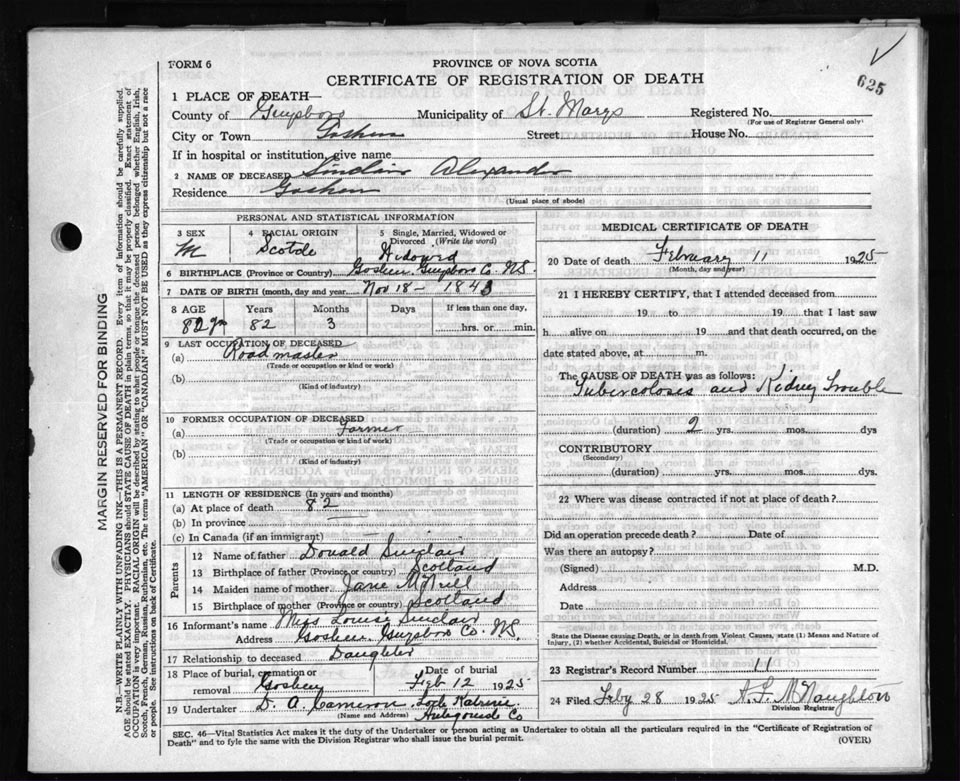 FORM 6
625
PROVINCE OF NOVA SCOTIA
CERTIFICATE OF REGISTRATION OF DEATH
1 PLACE OF DEATH—
County of Guysboro Municipality of St. Marys Registered No.
(For use of Registrar General only)
City or Town Goshen Street House No.
If in hospital or institution, give name
2 NAME OF DECEASED Sinclair Alexander
Residence Goshen
(Usual place of abode)
PERSONAL AND STATISTICAL INFORMATION
3 SEX 4 RACIAL ORIGIN 5 Single, Married, Widowed or Divorced (Write the word)
M Scotch Widowed
6 BIRTHPLACE (Province or Country) Goshen Guysboro Co. N.S.
7 DATE OF BIRTH (month, day and year) Nov 18 - 1843
8 AGE Years Months Days If less than one day,
82 yrs 82 3 hrs. or min.
9 LAST OCCUPATION OF DECEASED
(a) Road master
(Trade or occupation or kind or work)
(b)
(Kind of industry)
10 FORMER OCCUPATION OF DECEASED
(a) Farmer
(Trade or occupation or kind of work)
(b)
(Kind of industry)
11 LENGTH OF RESIDENCE (In years and months)
(a) At place of death 82
(b) In province
(c) In Canada (if an immigrant)
Parents
12 Name of father Donald Sinclair
13 Birthplace of father (Province or country) Scotland
14 Maiden name of mother Jane McNeill
15 Birthplace of mother (Province or country) Scotland
16 Informant's name Miss Louise Sinclair
Address Goshen, Guysboro Co. N.S.
17 Relationship to deceased Daughter
18 Place of burial, cremation or removal Goshen Date of burial Feb 12 1925
19 Undertaker D. A. Cameron, Loch Katrine Antigonish Co
(Name and Address)
MEDICAL CERTIFICATE OF DEATH
20 Date of death February 11 1925
(Month, day and year)
21 I HEREBY CERTIFY, that I attended deceased from
19 to 19 that I last saw
h alive on 19 and that death occurred, on
date stated above, at m.
The CAUSE OF DEATH was as follows:
Tubercolosis and Kidney Trouble
(duration) 2 yrs. mos. dys
CONTRIBUTORY
(Secondary)
(duration) yrs. mos. dys.
22 Where was disease contracted if not at place of death?
Did an operation precede death? Date of
Was there an autopsy?
(Signed) M.D.
Address
Date
State the Disease causing Death, or in death from Violent Causes, state (1) Means and Nature of
Injury, (2) whether Accidental, Suicidal or Homicidal.
23 Registrar's Record Number 11
24 Filed Feby 28 1925 A. F. McNaughton
Division Registrar
SEC. 46—Vital Statistics Act makes it the duty of the Undertaker or person acting as Undertaker to obtain all the particulars required in the "Certificate of Registration of
Death" and to fyle the same with the Division Registrar who shall issue the burial permit.
(OVER)
MARGIN RESERVED FOR BINDING
N.B.—WRITE PLAINLY WITH UNFADING INK—THIS IS A PERMANENT RECORD. Every item of information should be carefully supplied.
AGE should be stated EXACTLY. PHYSICIANS should STATE CAUSE OF DEATH in plain terms, so that it may be properly classified. Exact statement of
OCCUPATION is very important. RACIAL ORIGIN will be described by stating to what people or tongue the deceased person belonged whether English, Irish,
Scotch, French, German, Russian, Ruthenian, etc. The terms "AMERICAN" OR "CANADIAN" MUST NOT BE USED as they express citizenship but not a race
or people. See instructions on back of Certificate.